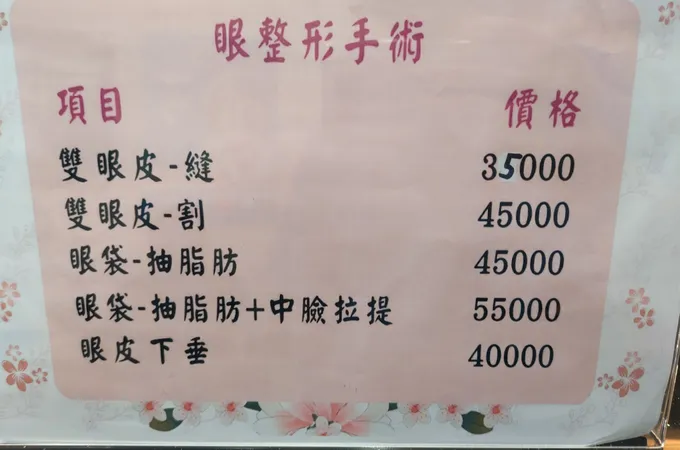 眼整形手術
項目 價格
雙眼皮-縫 35000
雙眼皮-割 45000
眼袋-抽脂肪 45000
眼袋-抽脂肪+中臉拉提 55000
眼皮下垂 40000